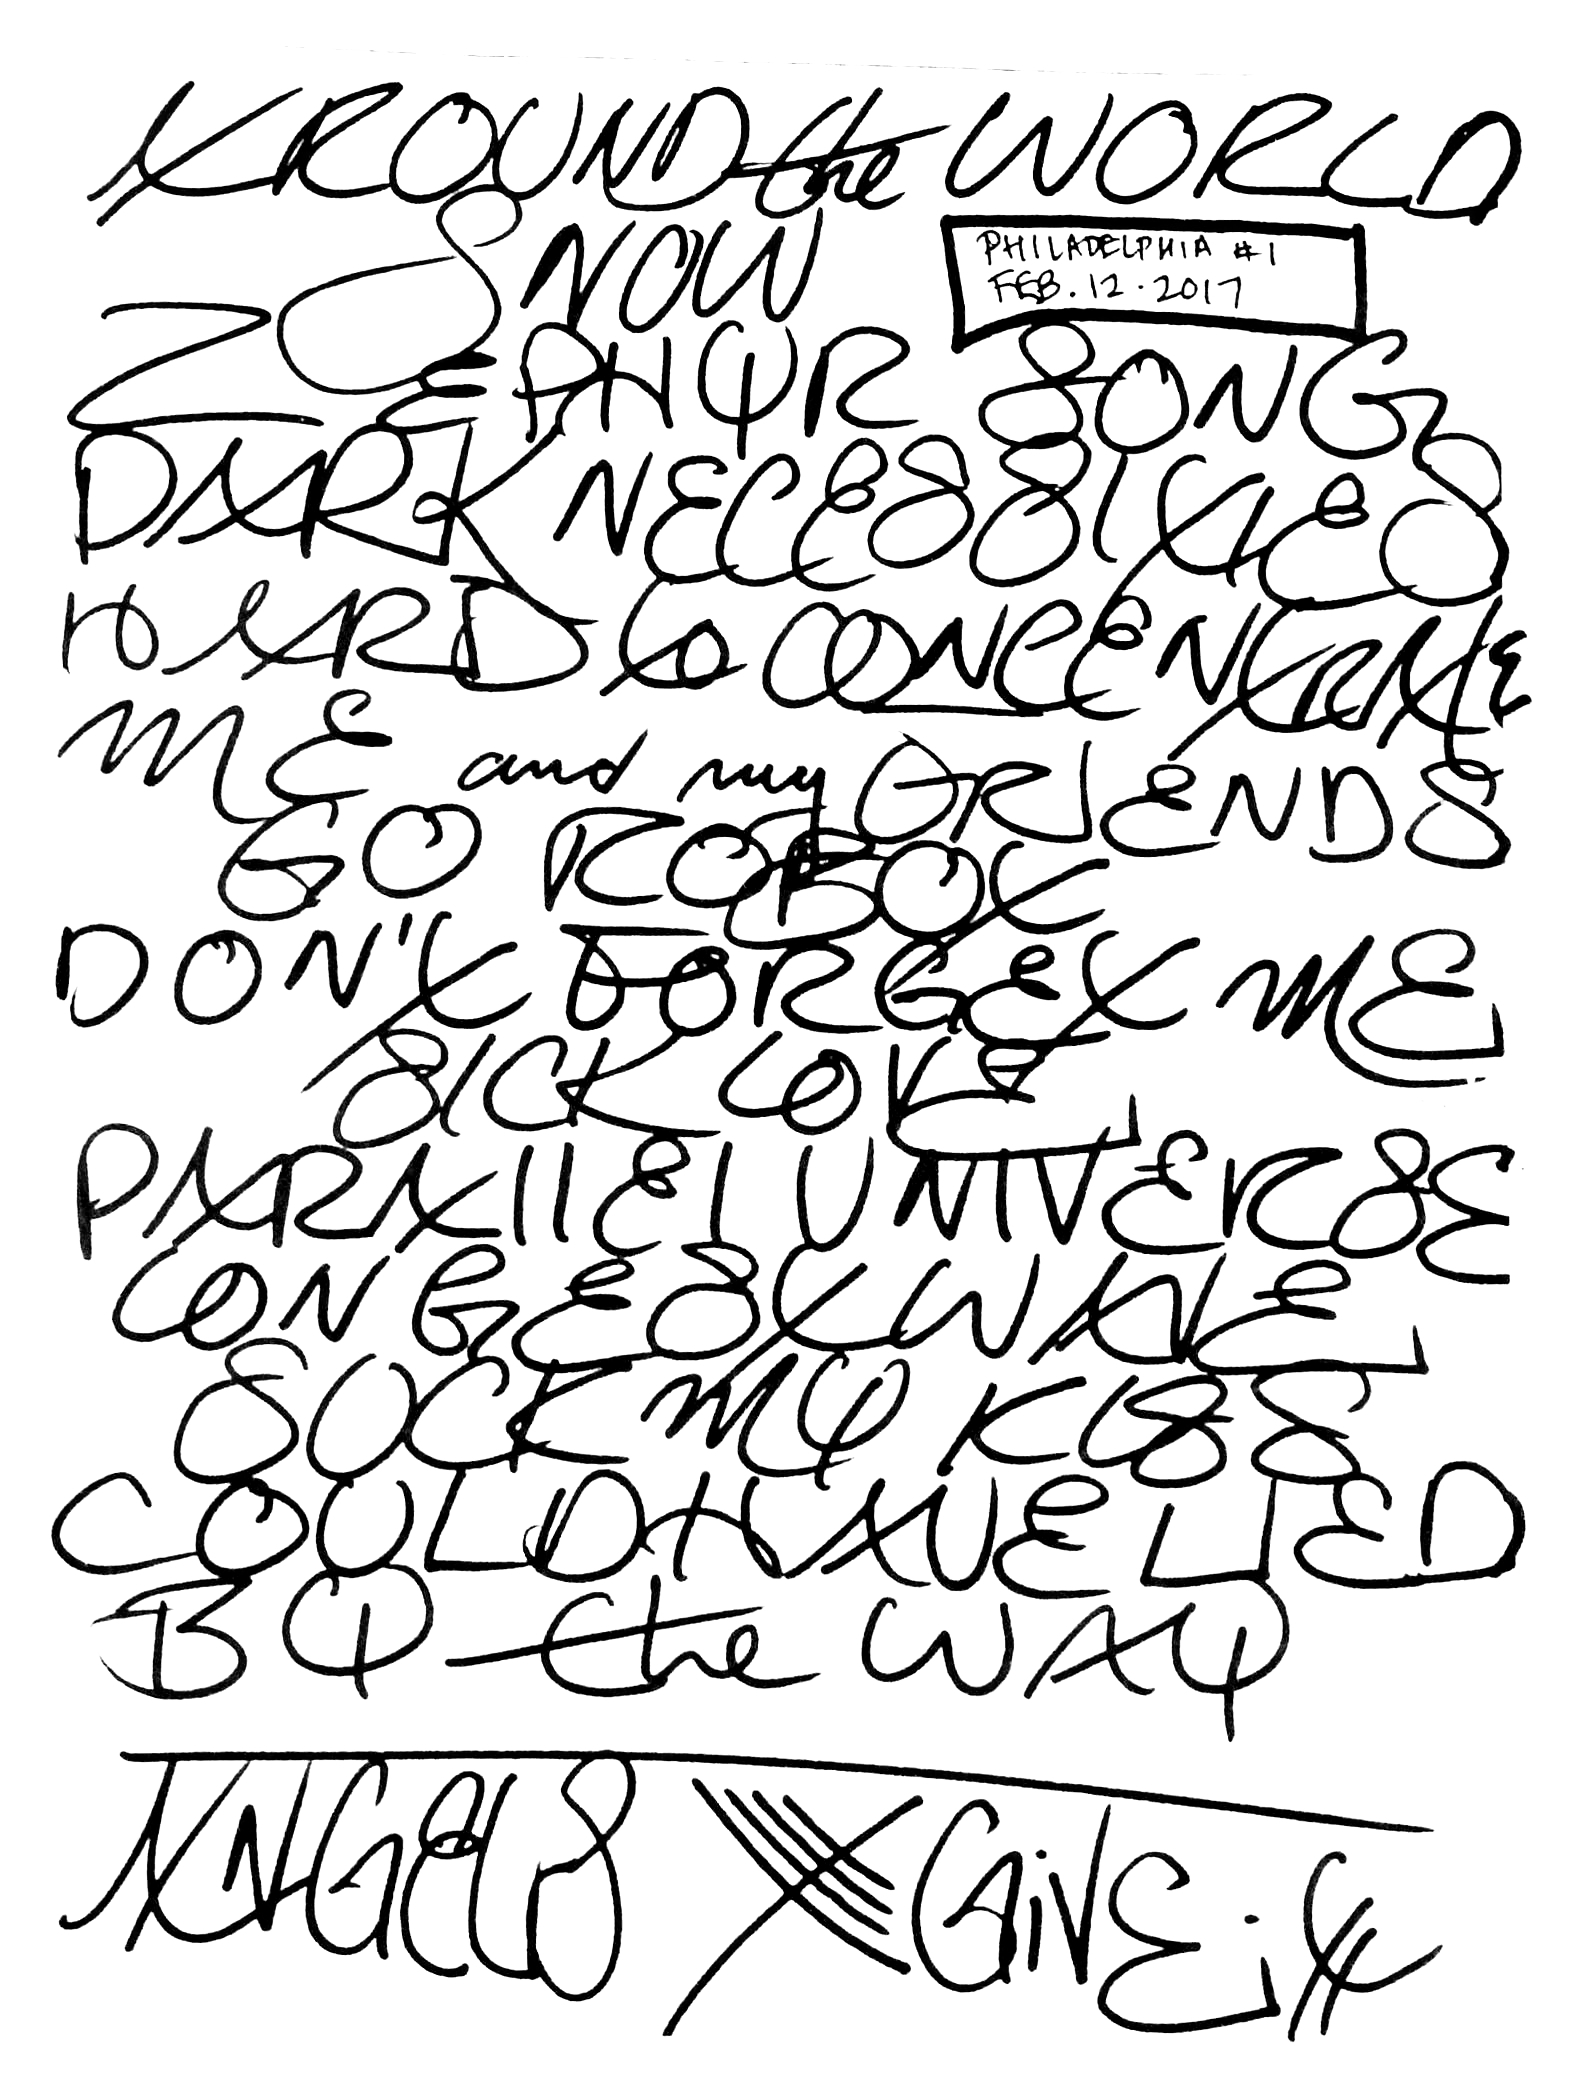 AROUND the WORLD
SNOW
PHILADELPHIA #1
FEB.12.2017
ZEPHYR SONG
DARK NECESSITIES
HARD to CONCENTRATE
ME and my FRIENDS
GO ROBOT
DON'T FORGET ME
SICK LOVE
PARALLEL UNIVERSE
LONGEST WAVE
SUCK MY KISS
COULD HAVE LIED
BY the WAY
ANGELS GIVE it